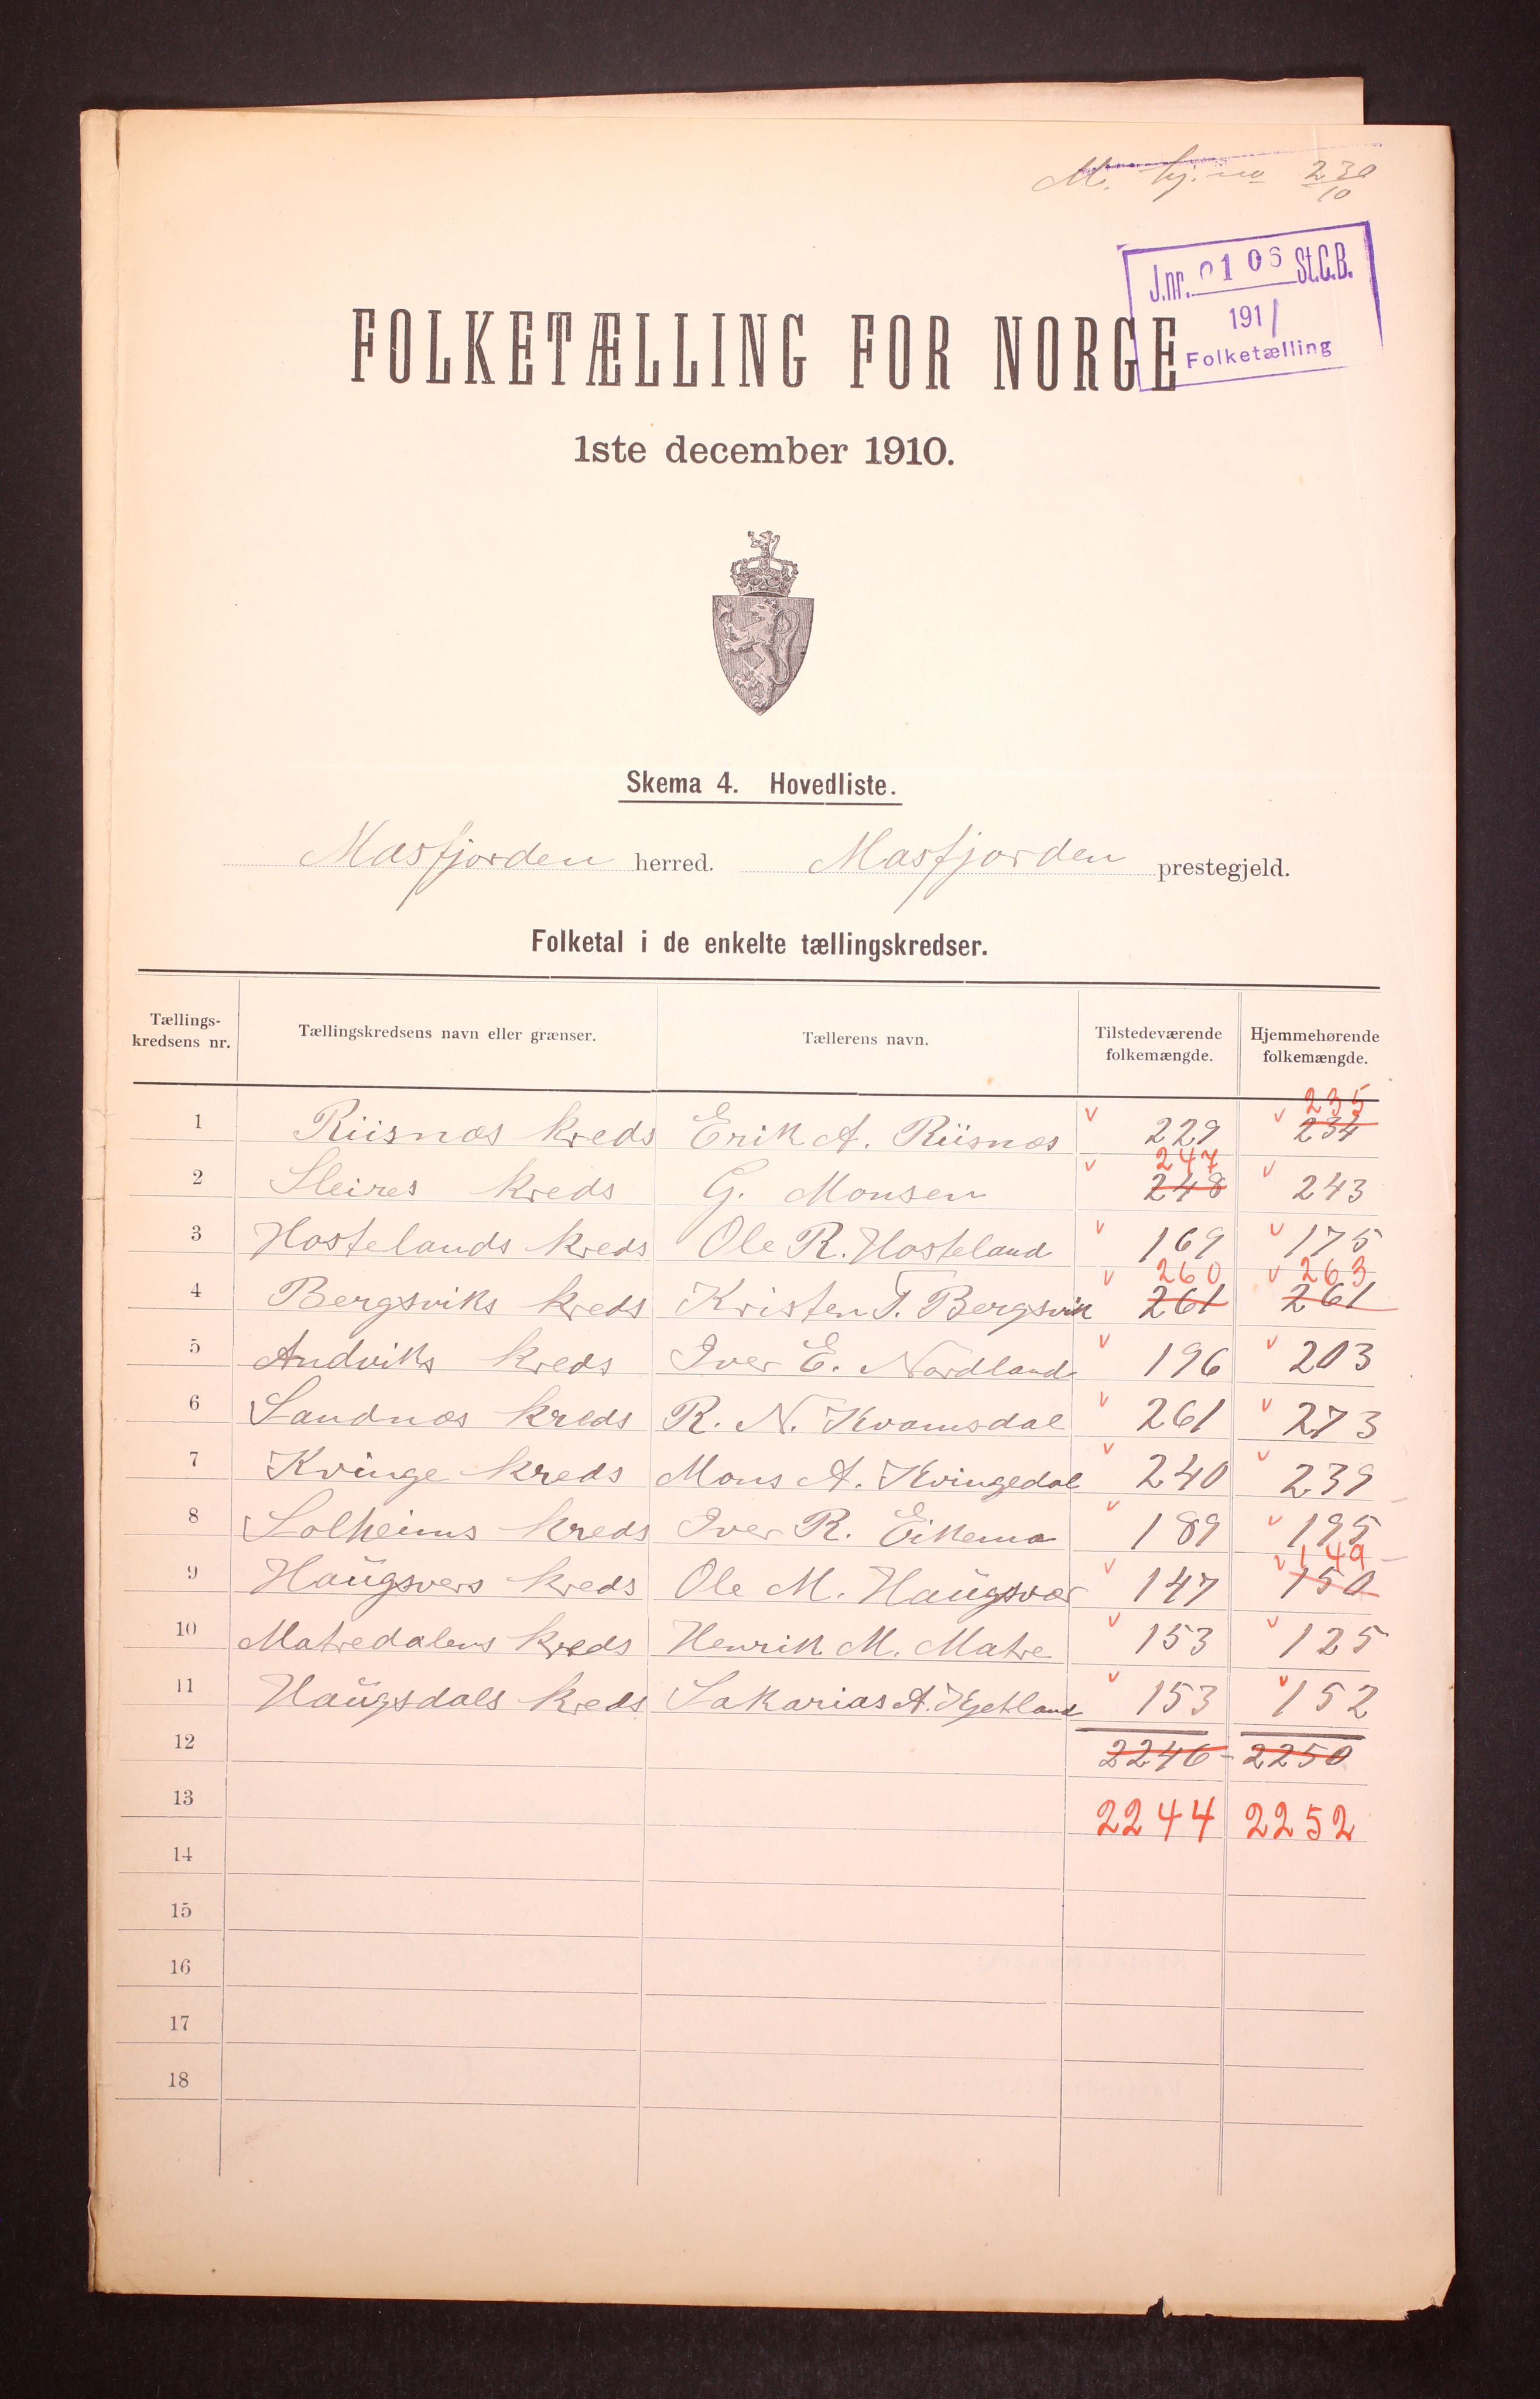 230
10
J.nr. 0106 St.C.B.
1911
Folketælling
FOLKETÆLLING FOR NORGE
1ste december 1910.
Skema 4. Hovedliste.
Masfjorden herred. Masfjorden prestegjeld.
Folketal i de enkelte tællingskredser.
Tællings-kredsens nr. Tællingskredsens navn eller grænser. Tællerens navn. Tilstedeværende folkemængde. Hjemmehørende folkemængde.
1 Riisnæs kreds Erik A. Riisnæs 229 234 235
2 Sleires kreds G. Monsen 248 247 243
3 Hostelands kreds Ole R. Hosteland 169 175
4 Bergsviks kreds Kristen T. Bergsvik 261 260 261 263
5 Andviks kreds Iver E. Nordland 196 203
6 Sandnæs kreds R. N. Kvamsdal 261 273
7 Kvinge kreds Mons A. Kvingedal 240 239
8 Solheims kreds Iver R. Eikemo 189 195
9 Haugsvers kreds Ole M. Haugsvær 147 150 149
10 Matredalens kreds Henrik M. Matre 153 125
11 Haugsdals kreds Sakarias A. Kjetland 153 152
12 2246 - 2250
13 2244 2252
14
15
16
17
18